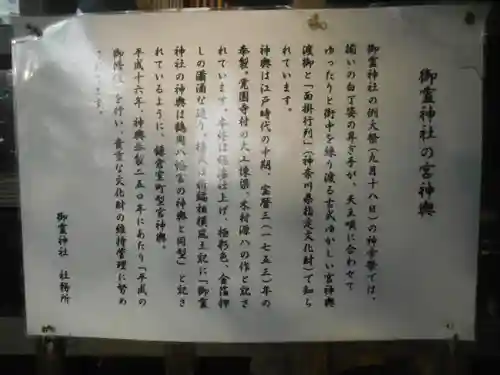 御霊神社の宮神輿
御霊神社の例大祭(九月十八日)の神幸祭では、
揃いの白丁姿の舁ぎ手が、天王唄に合わせて
ゆったりと街中を練り渡る古式ゆかしい宮神輿
渡御と「面掛行列」(神奈川県指定文化財)で知ら
れています。
神輿は江戸時代の中期、宝暦三(一七五三)年の
奉製。覚園寺村の大工棟梁、木村源八の作と記さ
れています。本体は極漆仕上げ、極彩色、金箔押
しの瀟洒な造り。様式は「新編相模風土記」に「御霊
神社の神輿は鶴岡八幡宮の神輿と同型」と記さ
れているように、鎌倉室町型宮神輿。
平成十六年、神輿奉製二五〇年にあたり「平成の
御修復」を行い、貴重な文化財の維持管理に努め
ています。
御霊神社 社務所